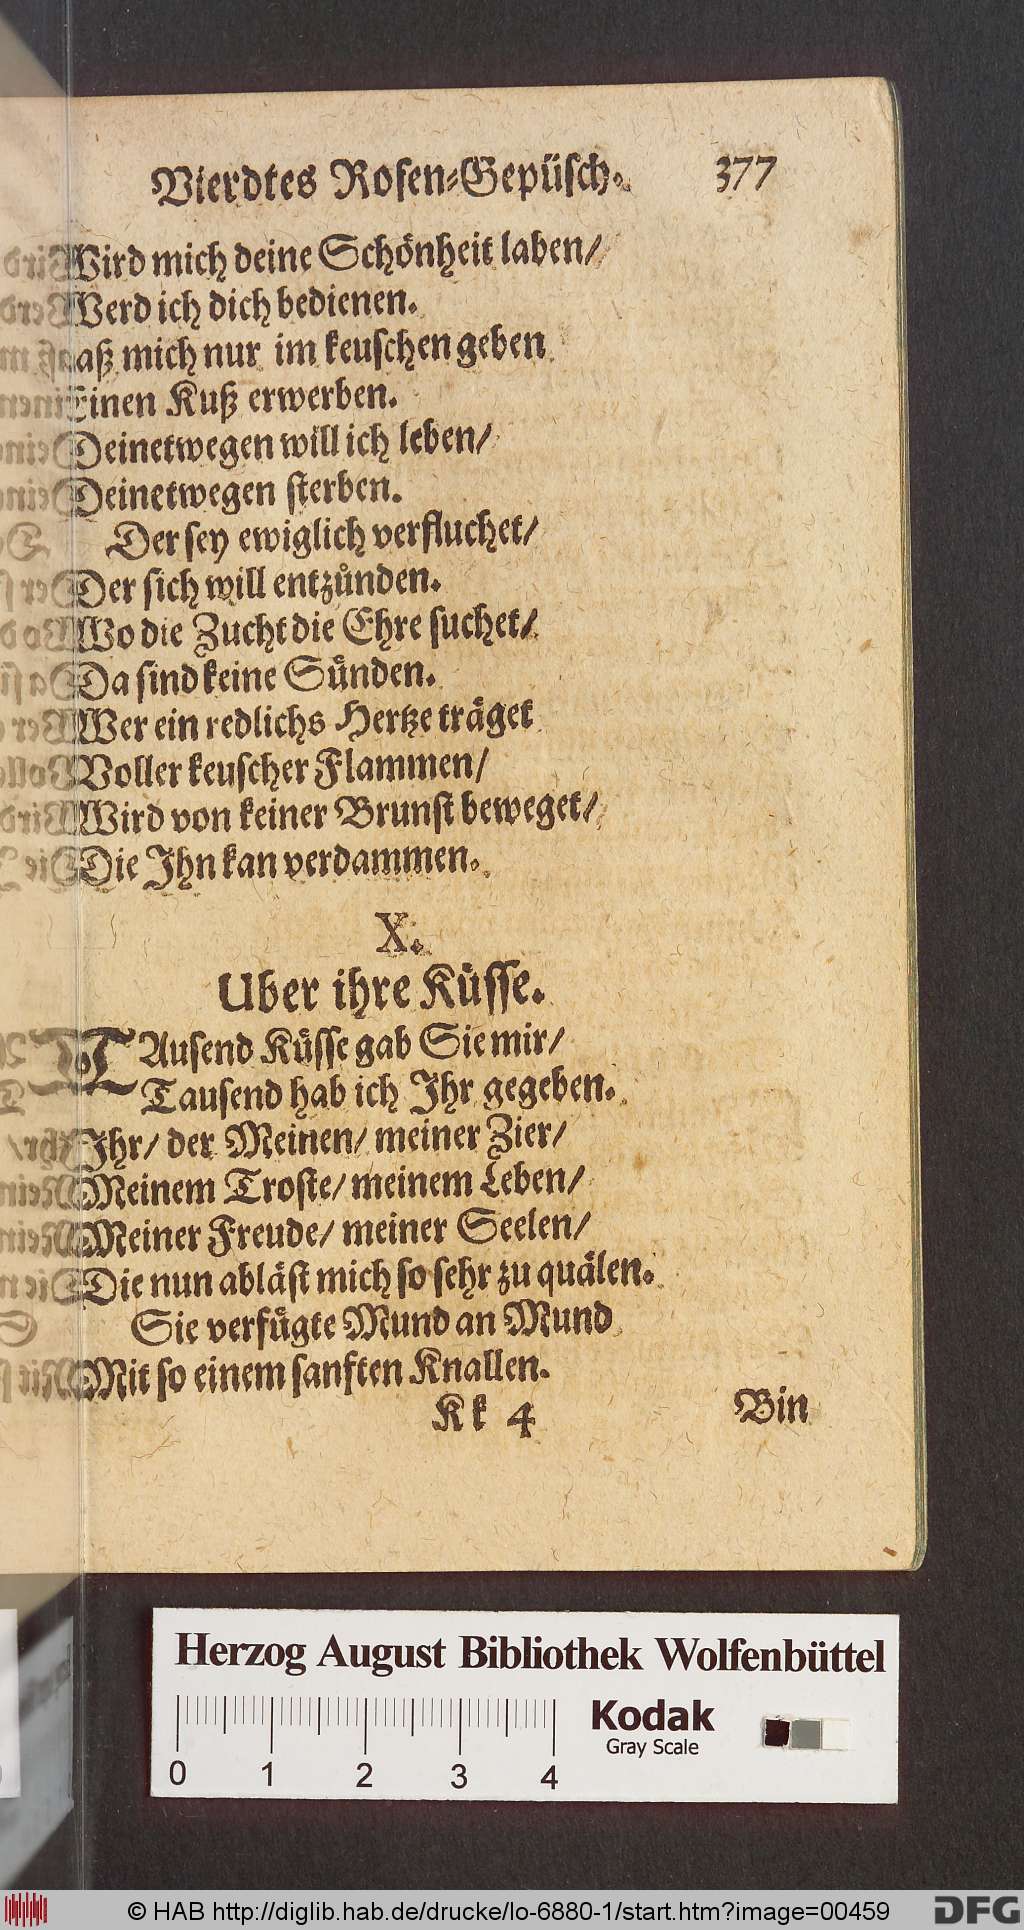 Vierdtes Rosen-Gepüsch. 377
Wird mich deine Schönheit laben/
Werd ich dich bedienen.
Laß mich nur im keuschen geben
Einen Kuß erwerben.
Deinetwegen will ich leben/
Deinetwegen sterben.
Der sey ewiglich verfluchet/
Der sich will entzünden.
Wo die Zucht die Ehre suchet/
Da sind keine Sünden.
Wer ein redlichs Hertze träget
Voller keuscher Flammen/
Wird von keiner Brunst beweget/
Die Ihn kan verdammen.
X.
Uber ihre Küsse.
TAusend Küsse gab Sie mir/
Tausend hab ich Ihr gegeben.
Ihr/ der Meinen/ meiner Zier/
Meinem Troste/ meinem Leben/
Meiner Freude/ meiner Seelen/
Die nun abläst mich so sehr zu quälen.
Sie verfügte Mund an Mund
Mit so einem sanften Knallen.
Kk 4 Bin
Herzog August Bibliothek Wolfenbüttel
Kodak
Gray Scale
0 1 2 3 4
© HAB http://diglib.hab.de/drucke/lo-6880-1/start.htm?image=00459
DFG